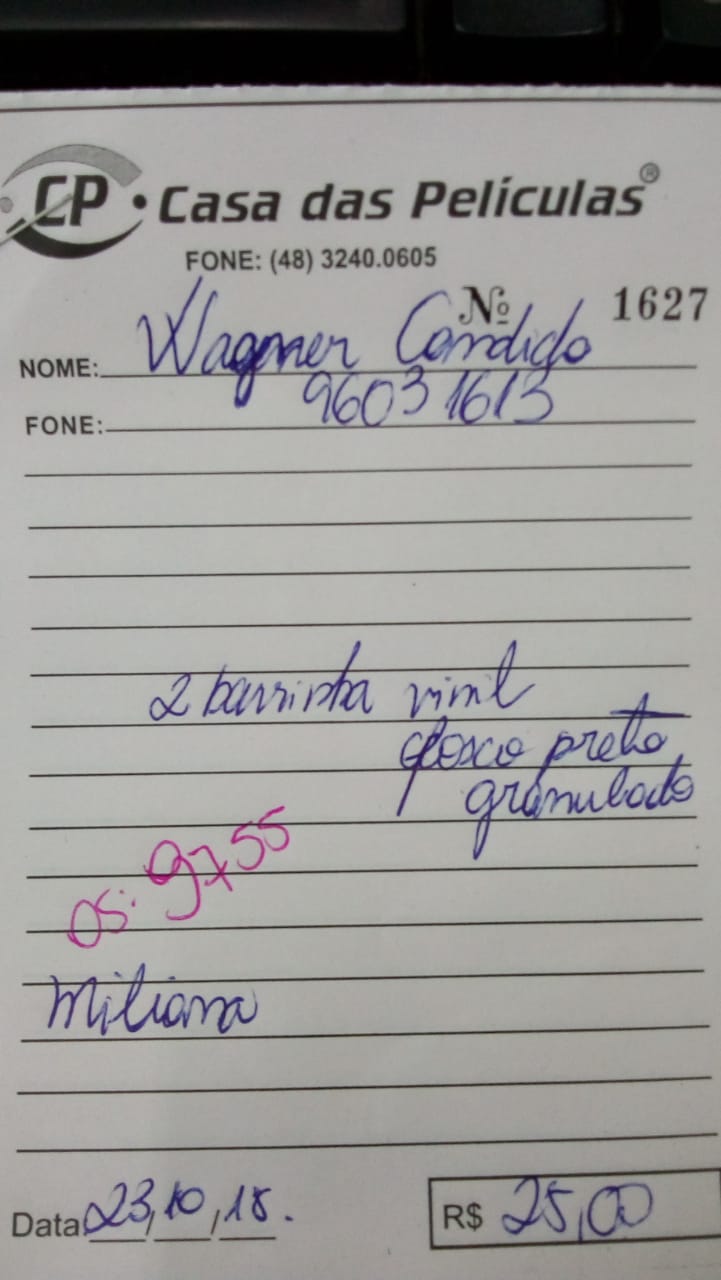 CP • Casa das Películas®
FONE: (48) 3240.0605
Nº 1627
NOME: Wagner Candido
FONE: 96031613
2 barrinha vinil
fosco preto
granulado
OS: 9755
Miliana
Data 23/10/18.
R$ 25,00